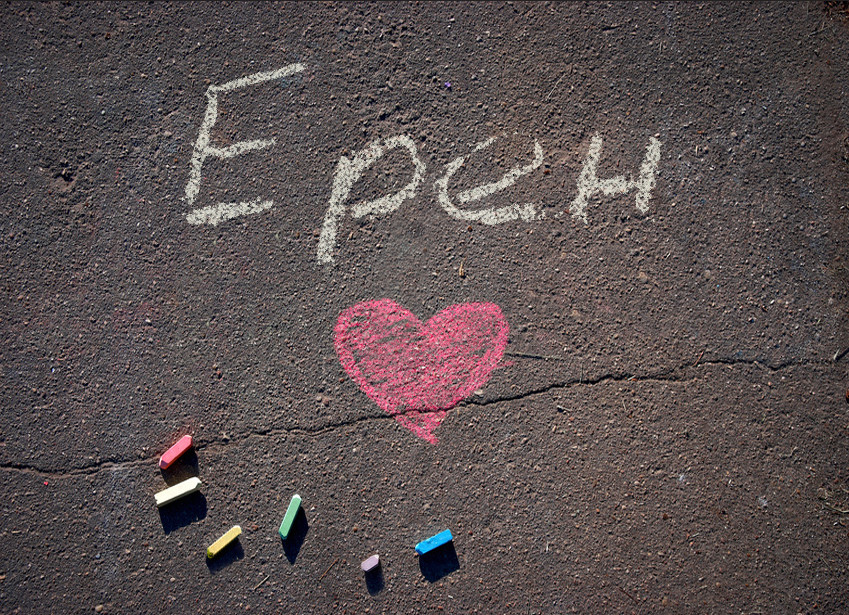 Ерен